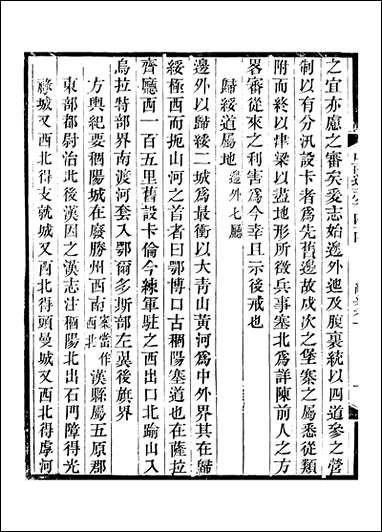 之宜亦慮之審矣爰志始邊外迤及腹裏統以四道參之營
制以有分汛設卡者爲先舊邊故戍次之堡寨之屬悉從類
附而終以津梁以盡地形所徵兵事塞北爲詳陳前人之方
畧審從來之利害爲今幸且示後戒也
歸綏道屬地邊外七廳
邊外以歸綏二城爲最衝以大青山黃河爲中外界其在歸
綏極西而扼山河之首者曰鄂博口古稒陽塞道也在薩拉
齊廳西一百五里舊設卡倫今練軍駐之西出口北踰山入
烏拉特部界南渡河套入鄂爾多斯部左翼後旗界
方輿紀要稒陽城在廢勝州西南案當作西北漢縣屬五原郡
東部都尉治此後漢因之漢志注稒陽北出石門障得光
祿城又西北得支就城又西北得頭曼城又西北得虖河